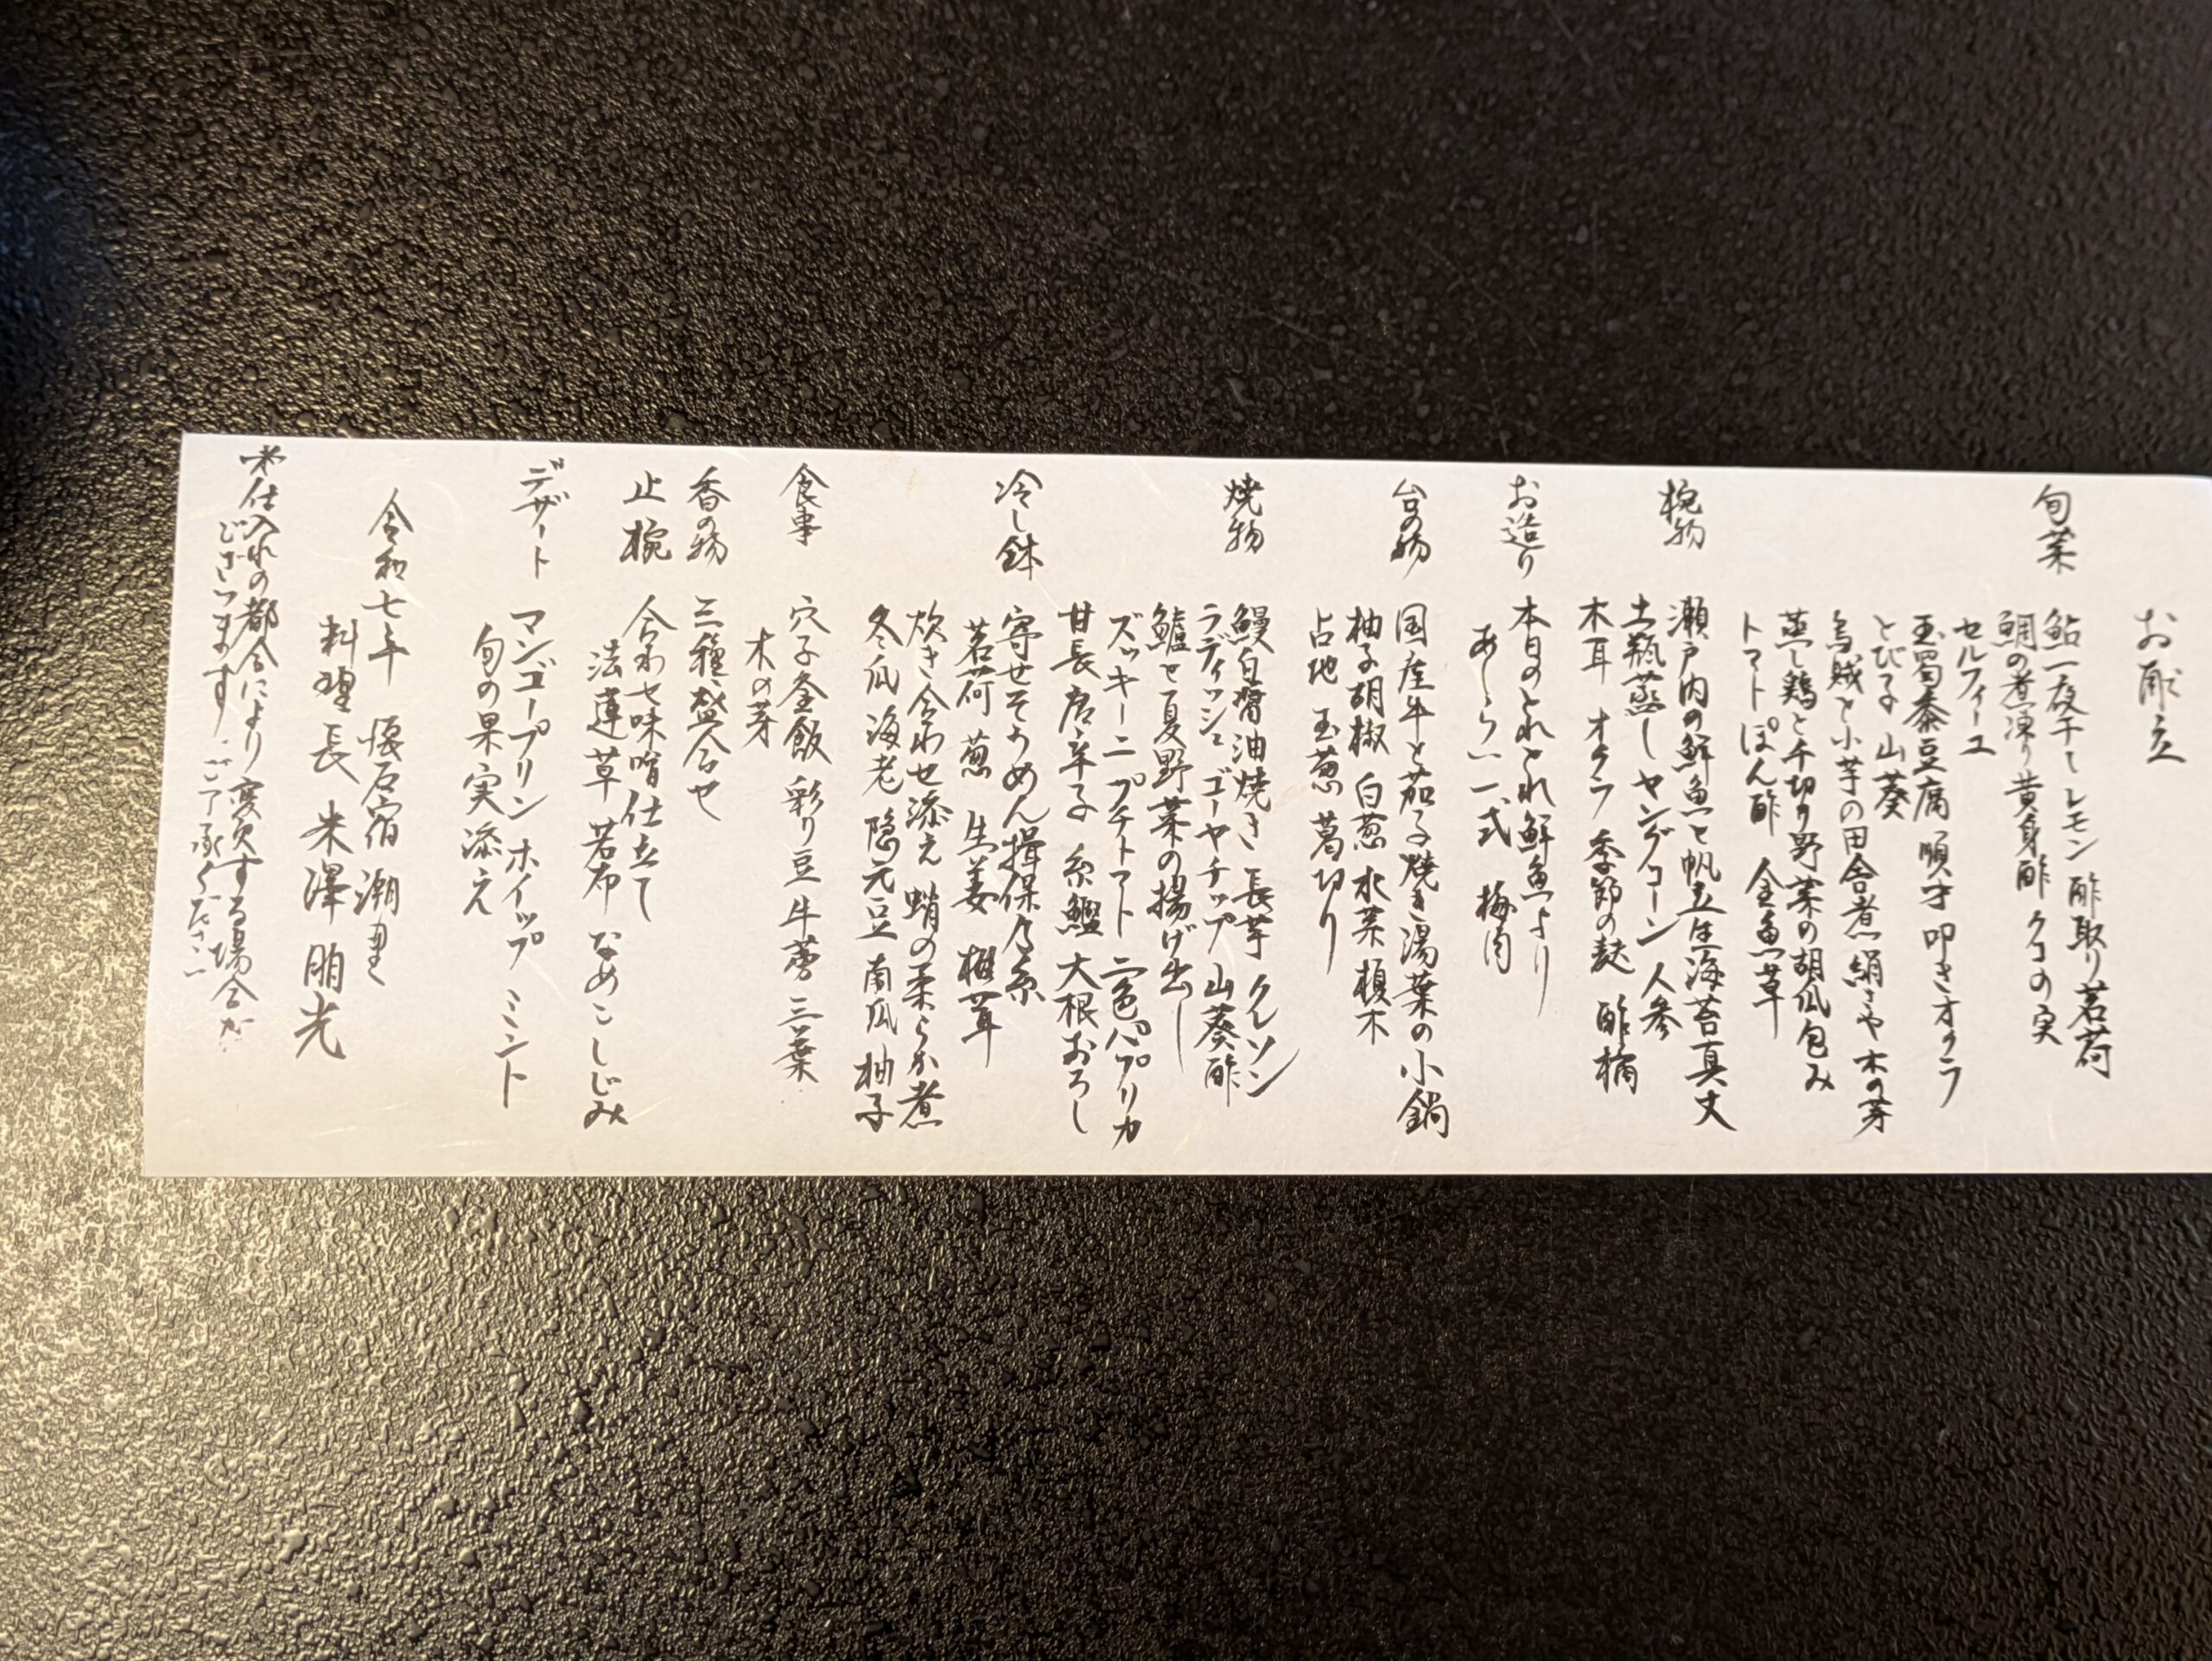 お献立
旬菜
鮎一夜干し レモン 酢取り茗荷
鯛の煮凍り 黄身酢 クコの実
セルフィーユ
玉蜀黍豆腐 順才 叩きオクラ
とびこ 山葵
烏賊と小芋の田舎煮 絹さや 木の芽
蒸し鶏と千切り野菜の胡瓜包み
トマトぽん酢 金魚草
椀物
瀬戸内の鮮魚と帆立生海苔真丈
土瓶蒸し ヤングコーン 人参
木耳 オクラ 季節の麩 酢橘
お造り
本日のとれとれ鮮魚より
あしらい一式 梅肉
台の物
国産牛と茄子焼き湯葉の小鍋
柚子胡椒 白葱 水菜 榎木
占地 玉葱 葛切り
焼物
鰻白醤油焼き 長芋 クレソン
ラディッシュ ゴーヤチップ 山葵酢
鱧と夏野菜の揚げ出し
ズッキーニ プチトマト 二色パプリカ
甘長唐辛子 糸鰹 大根おろし
冷し鉢
寄せそうめん揖保乃糸
茗荷 葱 生姜 椎茸
炊き合わせ添え 蛸の柔らか煮
冬瓜 海老 隠元豆 南瓜 柚子
食事
穴子釜飯 彩り豆 牛蒡 三葉
木の芽
香の物
三種盛合せ
止椀
合わせ味噌仕立て
法蓮草 若布 なめこ しじみ
デザート
マンゴープリン ホイップ ミント
旬の果実添え
令和七年 懐石宿 潮里
料理長 米澤 朋光
※仕入れの都合により変更する場合が
ございます。ご了承ください